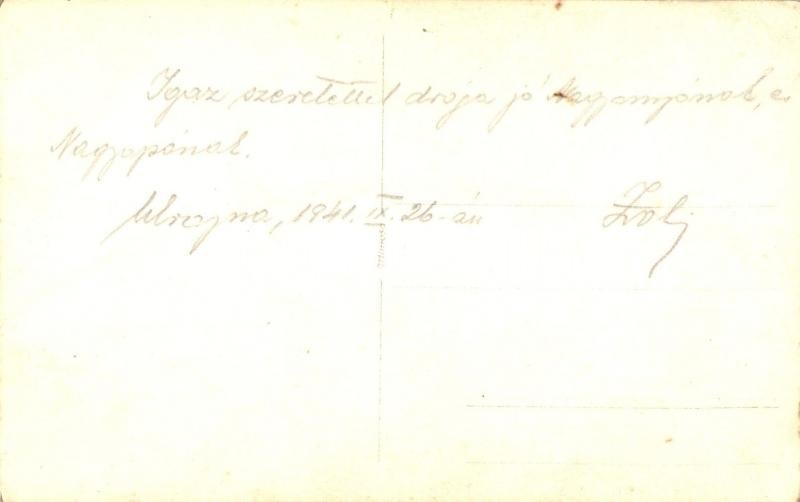 Igaz szeretettel drága jó Nagyanyának, és
Nagyapának.
Ukrajna, 1941. IX. 26-án Zoli